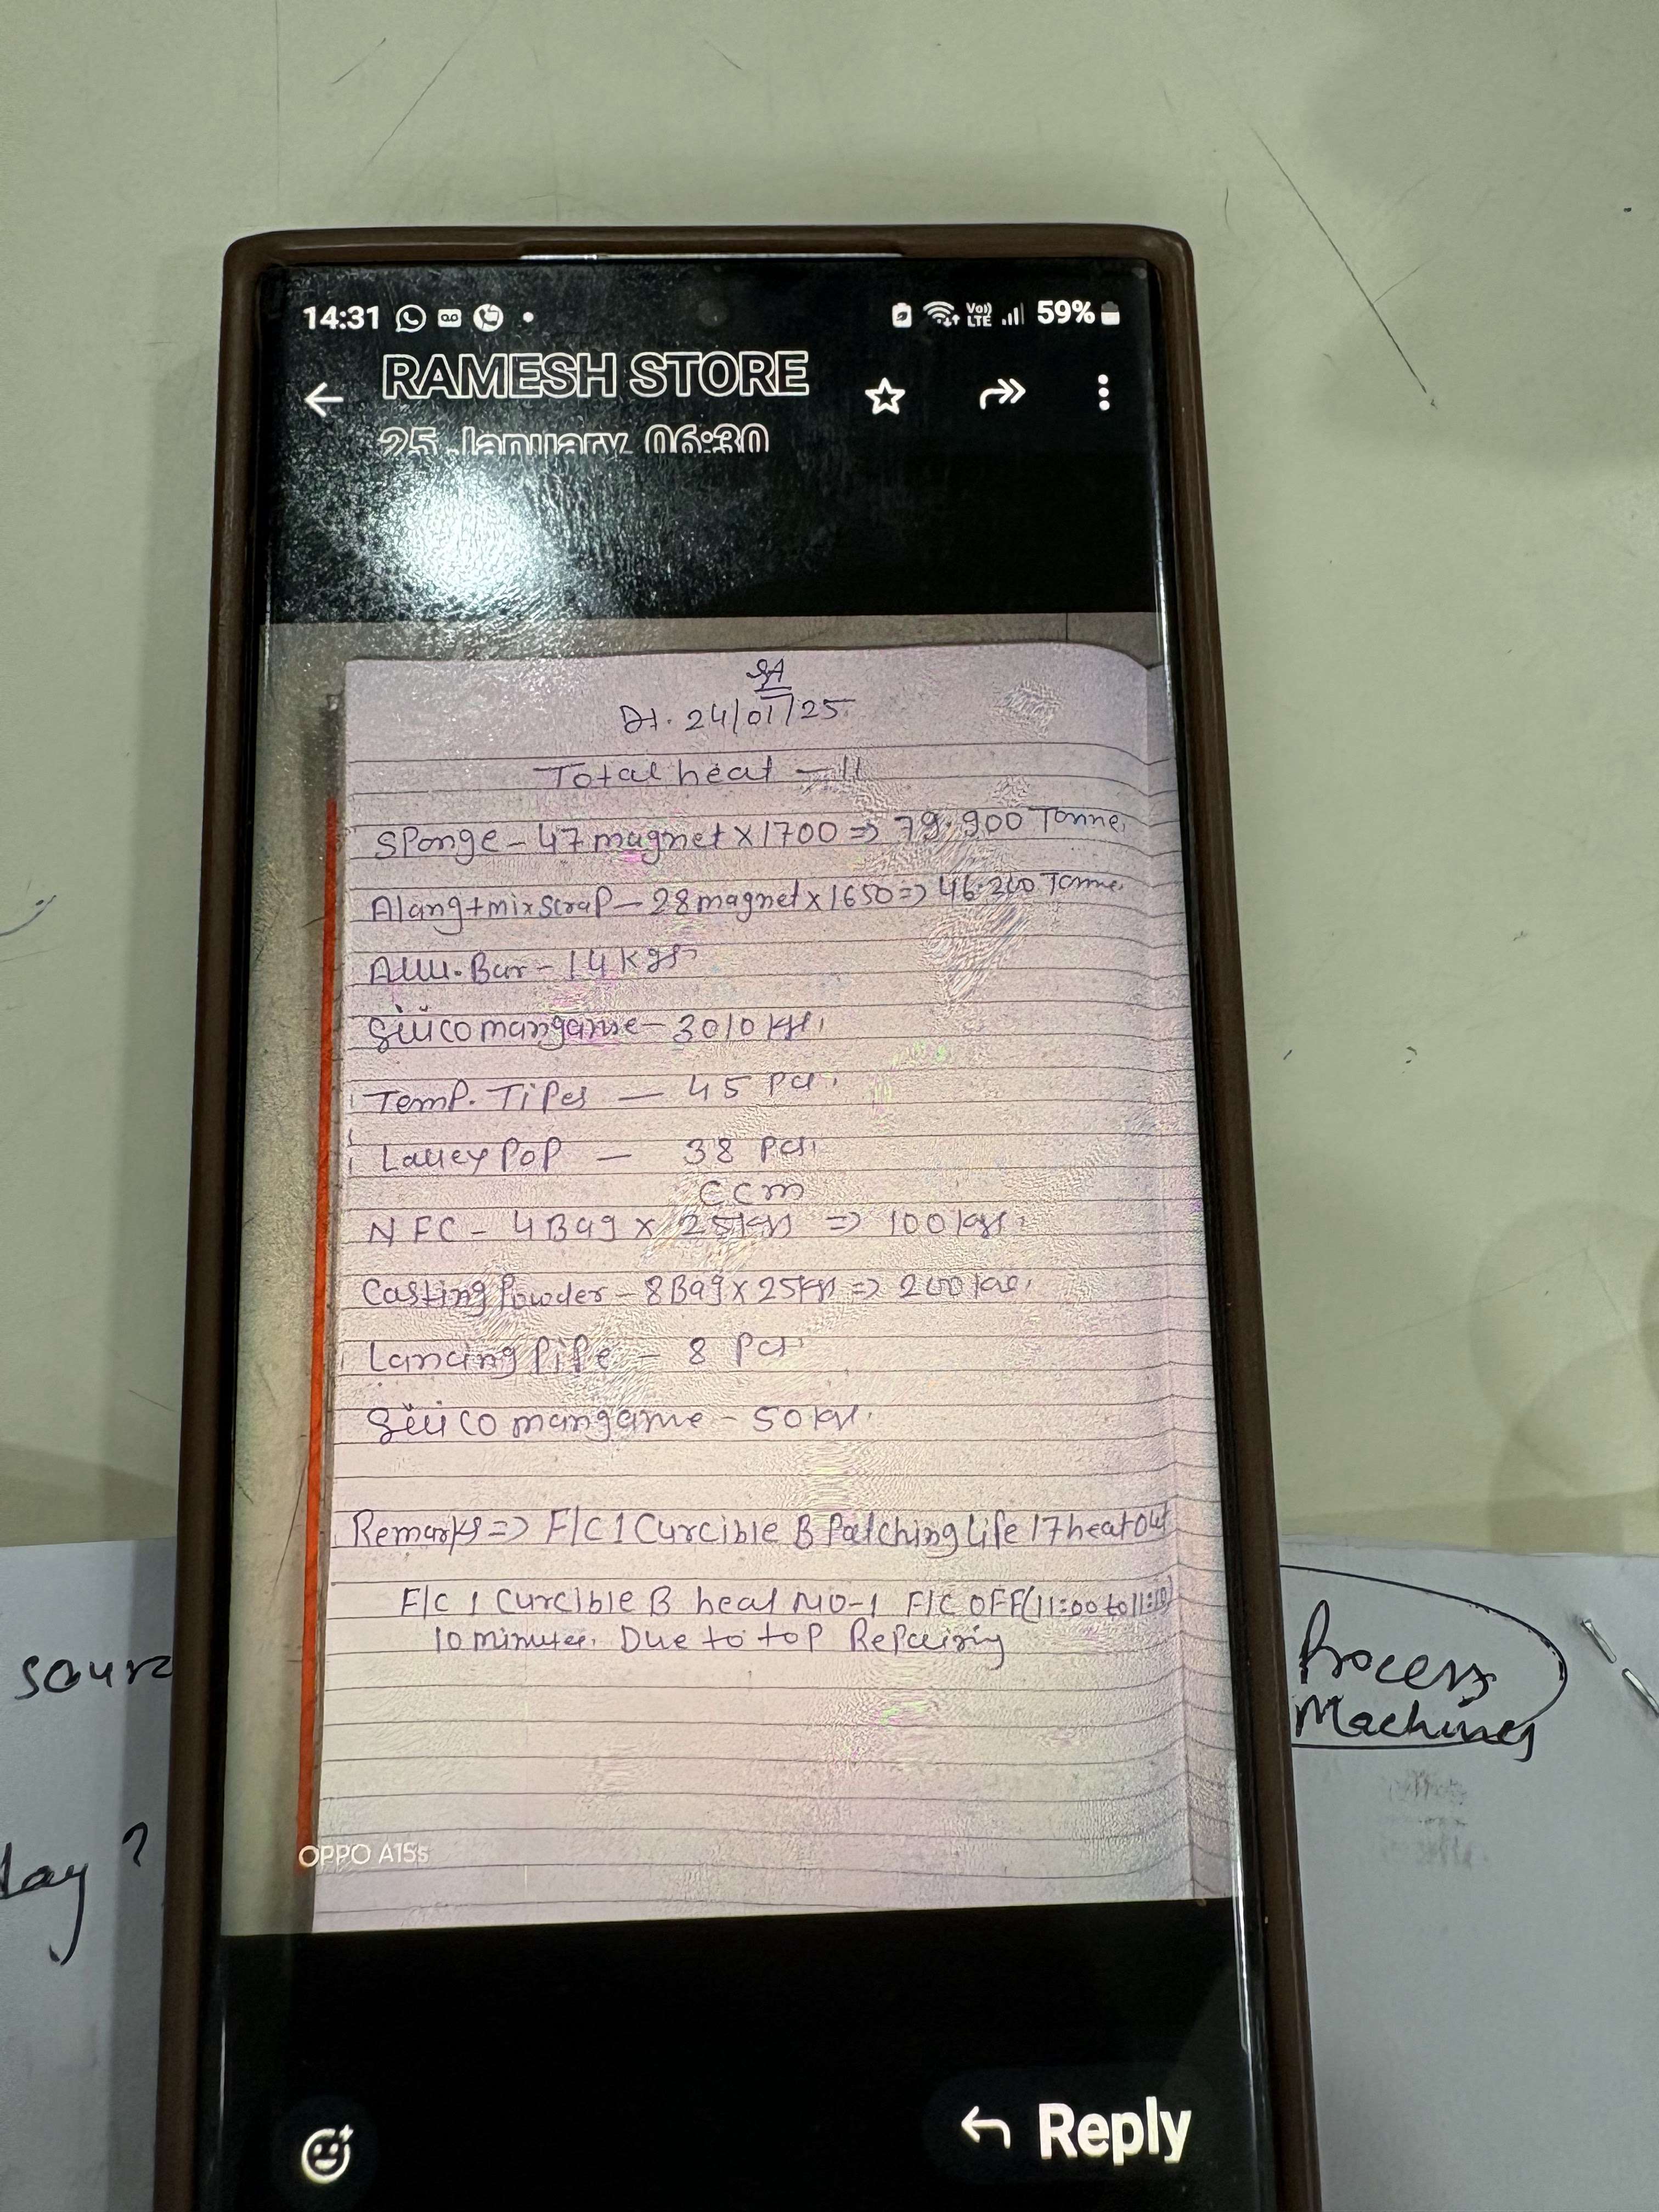 14:31
59%
RAMESH STORE
25 January, 06:30
Dt. 24/01/25
Total heat - 11
Sponge - 47 magnet x 1700 => 79.900 Tonne.
Alang + mix Scrap - 28 magnet x 1650 => 46.200 Tonne.
Alu. Bar - 14 kgs
Silico manganise - 3010 kgs.
Temp. Tipes - 45 Pcs.
Lalley PoP - 38 Pcs.
CCM
NFC - 4 Bag x 25 kgs => 100 kgs.
Casting Powder - 8 Bag x 25 kgs => 200 kgs.
Lancing Pipe - 8 Pcs.
Silico manganise - 50 kgs.
Remarks => F/C 1 Curcible B Patching life 17 heat Out
F/C 1 Curcible B heat NO-1 F/C OFF (11:00 to 11:10)
10 minutes. Due to top Repairing
OPPO A15s
sour
Process
Machines
lay ?
Reply